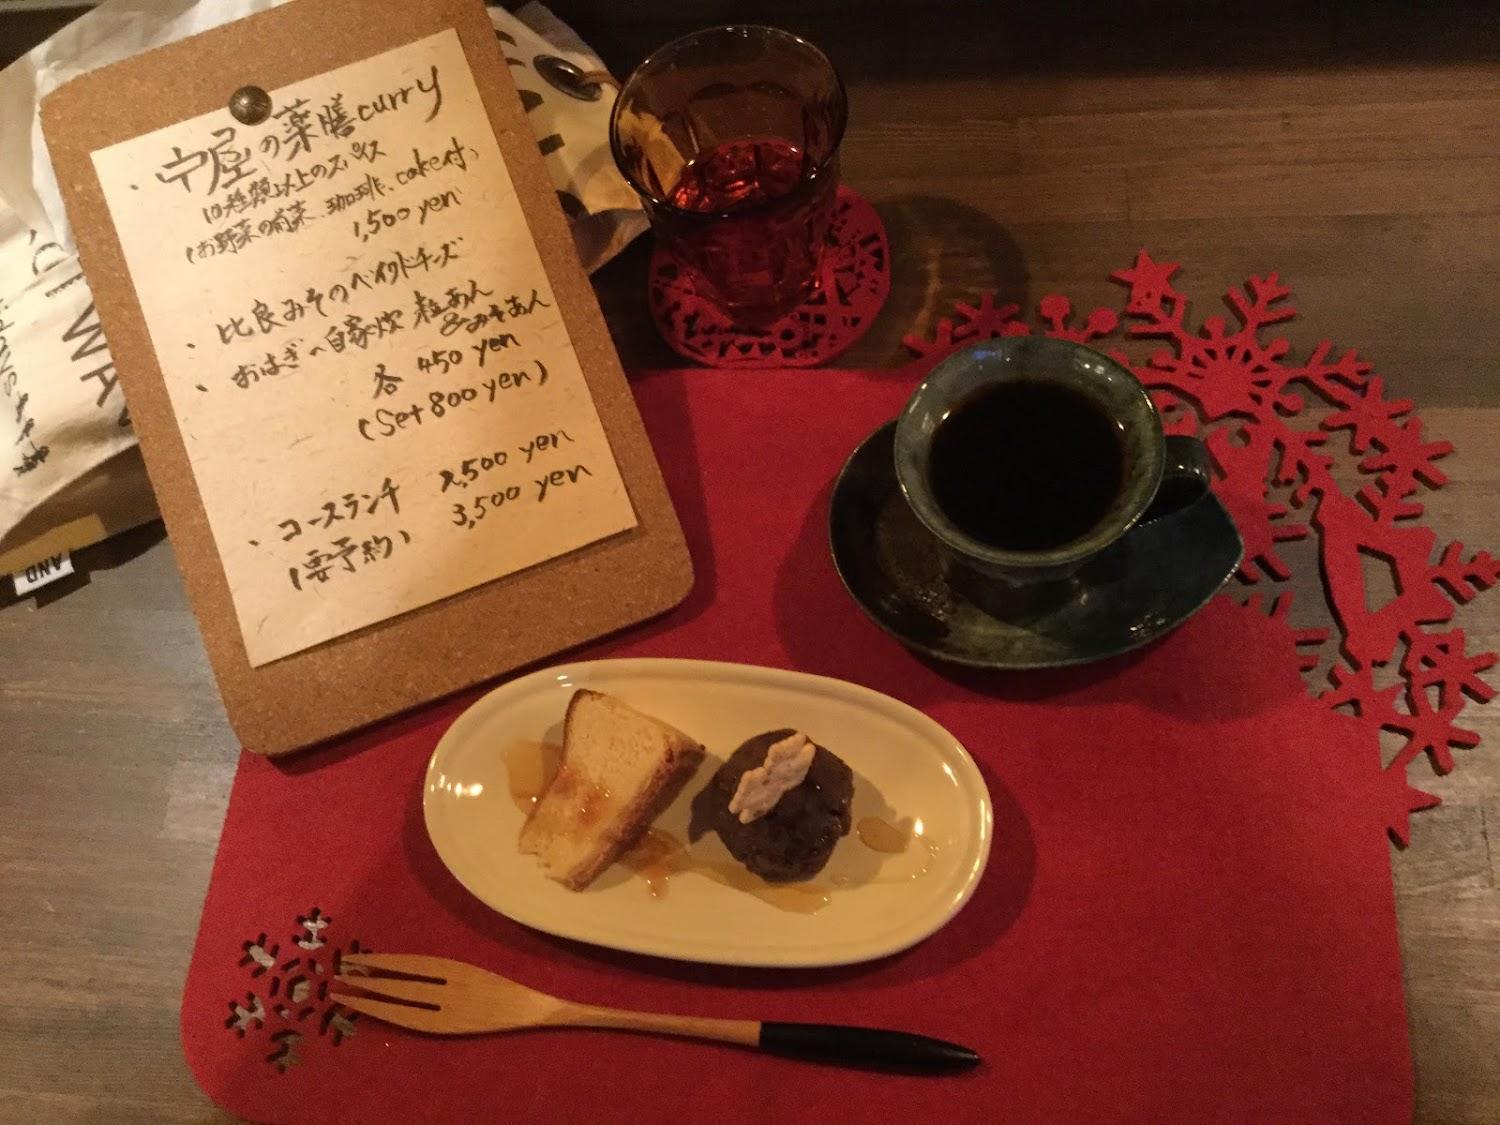 ・宀屋の薬膳curry
10種類以上のスパイス
(お野菜の前菜、珈琲、cake付)
1,500 yen
・比良みそのベイクドチーズ
・おはぎへ自家炊 粒あん
&みそあん
各 450 yen
(Set 800 yen)
・コースランチ 2,500 yen
(要予約) 3,500 yen
AND